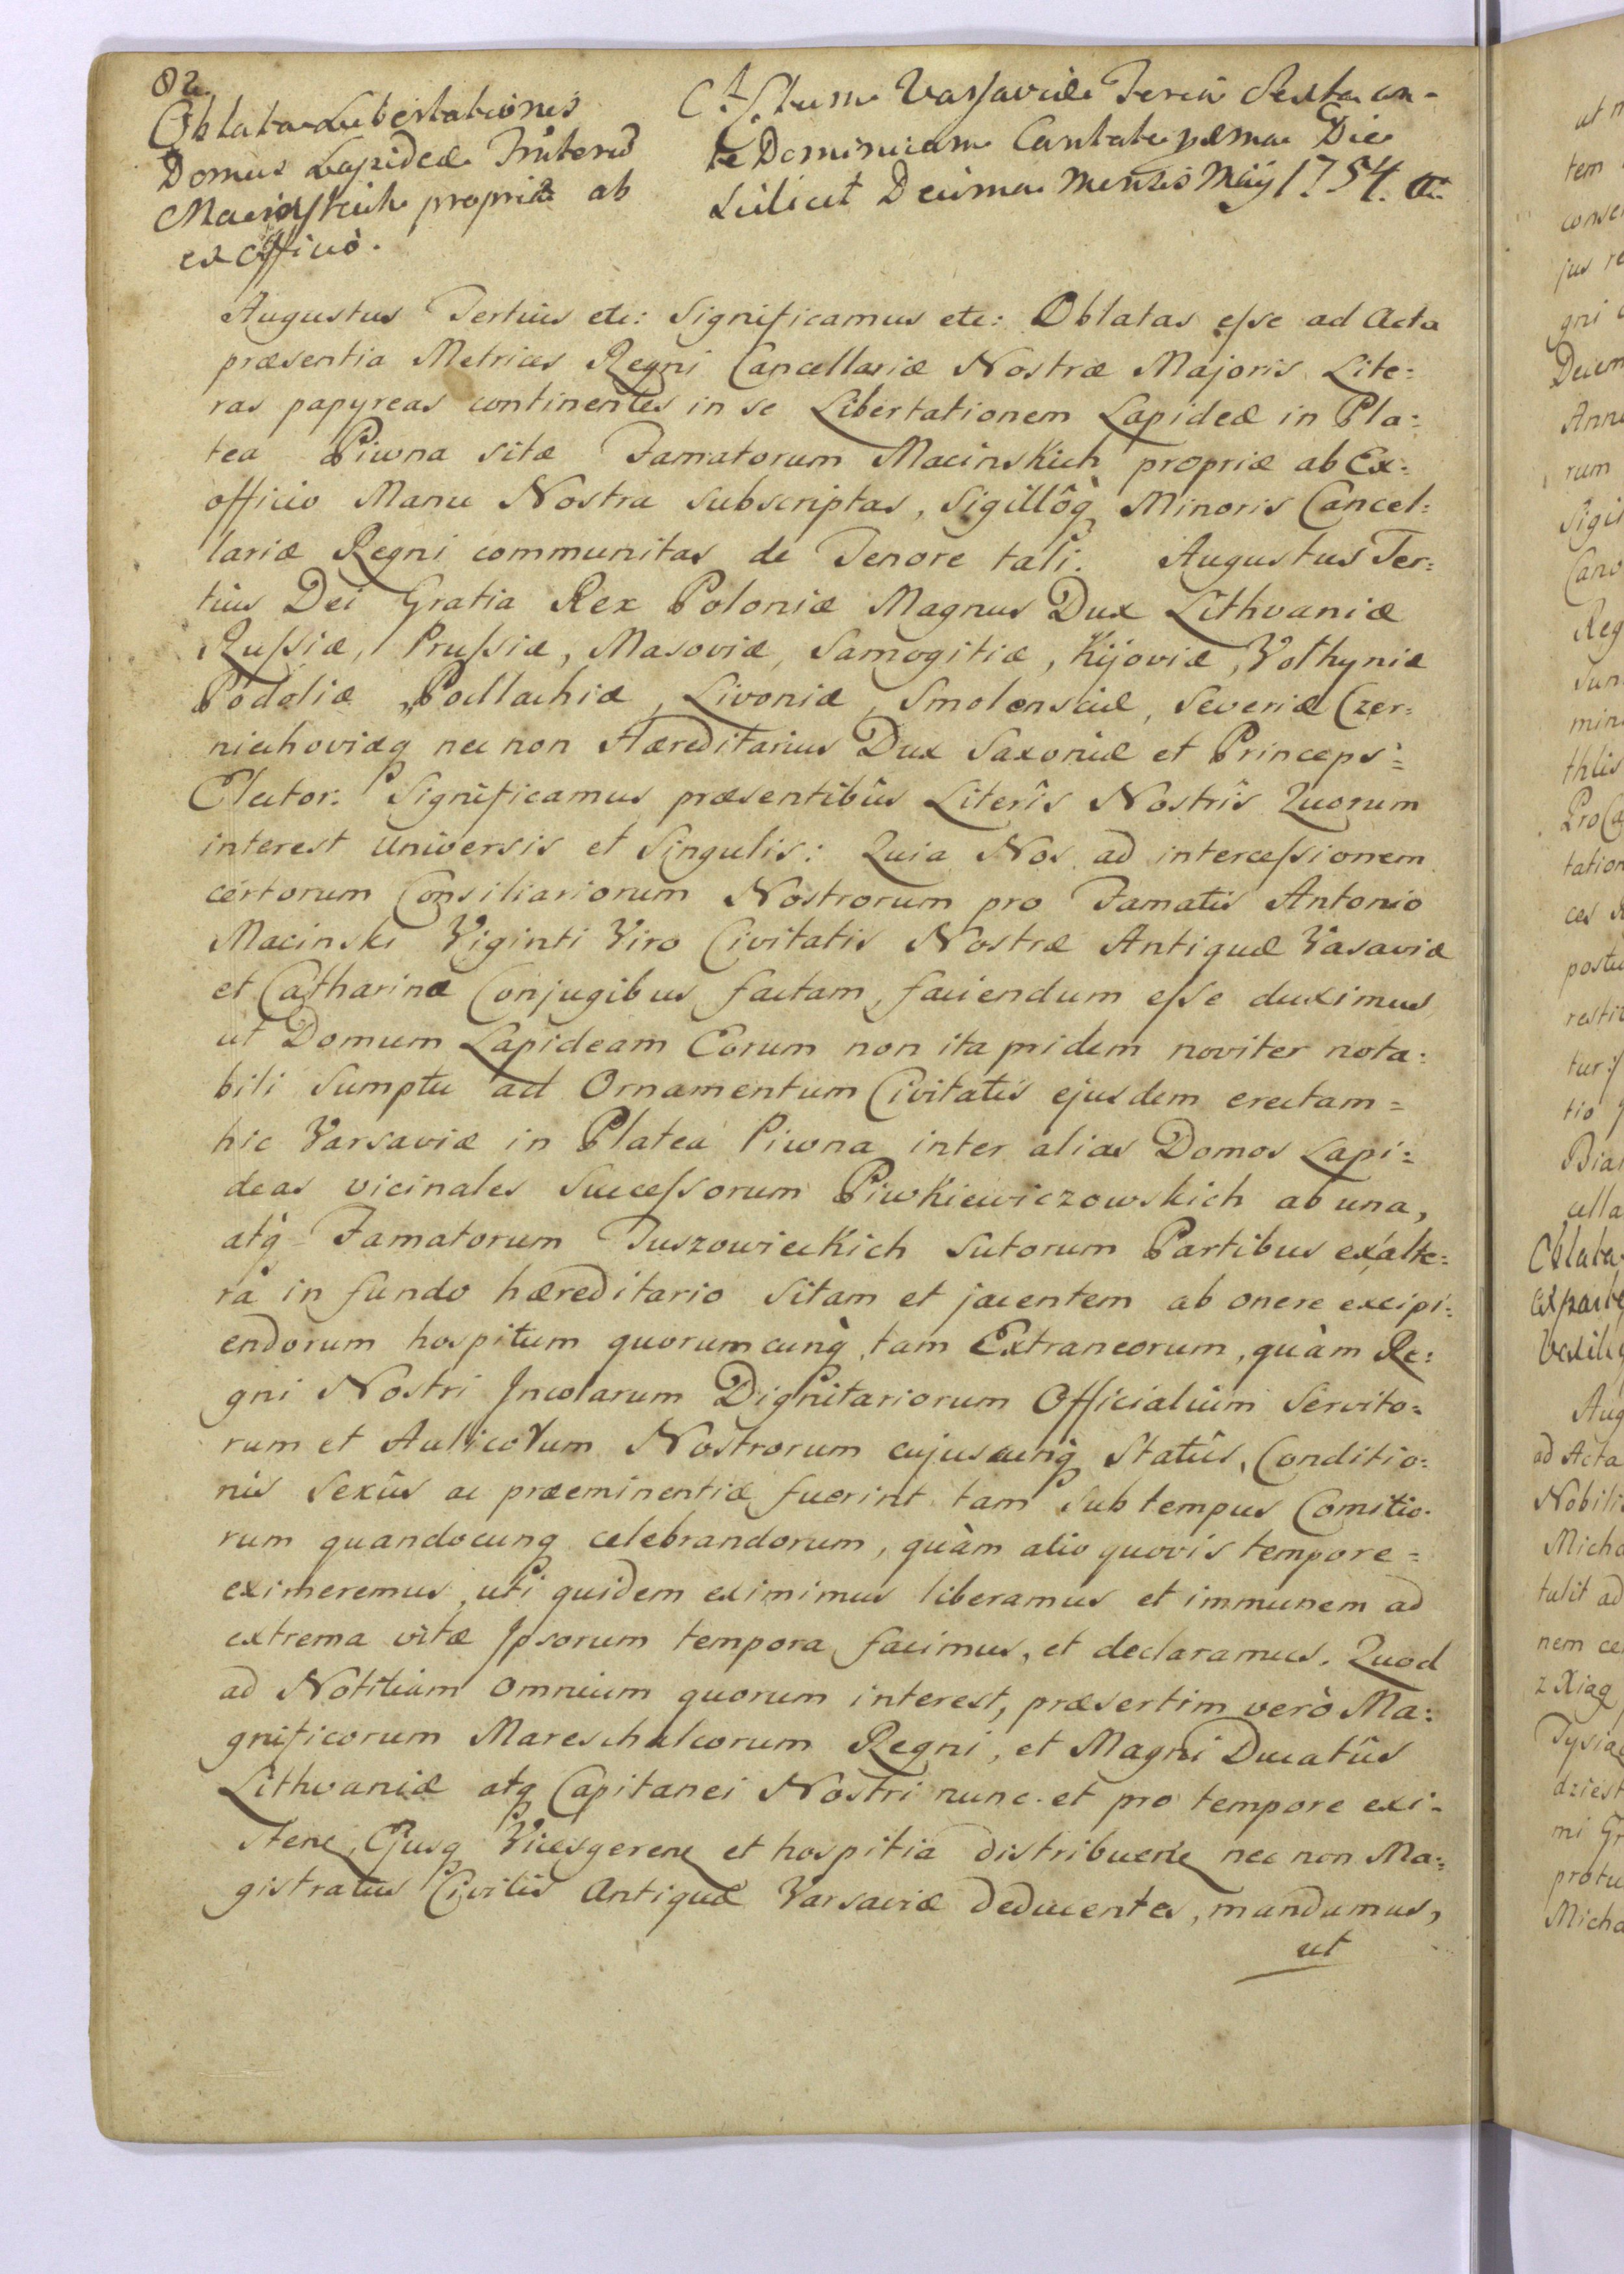 82.
Oblata Libertationis
Domus Lapideæ
Macinskich propriæ ab
ex Officiô.
Actum Varsaviæ Feria Sexta an-
te Dominicam Cantate proxima Die
Scilicet Decima Mensis Maij 1754. A.
Augustus Tertius etc: Significamus etc: Oblatas eſse ad Acta
præsentia Metrices Regni Cancellariæ Nostræ Majoris Lite:
ras papyreas continentes in se Libertationem Lapideæ in Pla:
tea Piwna sitæ Famatorum Macinskich propriæ ab Ex:
officio Manu Nostra subscriptas, Sigillôq̀ Minoris Cancel:
lariæ Regni communitas de Tenore tali. Augustus Ter:
tius Dei Gratia Rex Poloniæ Magnus Dux Lithvaniæ
Ruſsiæ, Pruſsiæ, Masoviæ, Samogitiæ, Kijoviæ, Volhyniæ
Podoliæ, Podlachiæ, Livoniæ, Smolensciæ, Severiæ Czer:
niechoviæq nec non Hæreditarius Dux Saxoniæ et Princeps:
Elector. Significamus præsentibûs Literîs Nostrîs Quorum
interest Universis et Singulis: Quia Nos ad interceſsionem
certorum Consiliariorum Nostrorum pro Famatis Antonio
Macinski Viginti Viro Civitatis Nostræ Antiquæ Vasaviæ
et Catharinæ Conjugibus factam, faciendum eſse duximus
ut Domum Lapideam Eorum non ita pridem noviter nota:
bili Sumptu ad Ornamentum Civitatis ejusdem erectam=
hic Varsaviæ in Platea Piwna inter alias Domos Lapi:
deas vicinales Succeſsorum Piwkiewiczowskich ab una,
atq̀ Famatorum Tuszowieckich Sutorum Partibus ex alte:
râ in fundo hæreditario Sitam et jacentem ab onere excipi:
endorum hospitum quorumcunq̀, tam Extraneorum, quàm Re:
gni Nostri Incolarum Dignitariorum Officialium Servito:
rum et Aulicorum Nostrorum cujuscunq̀ Statûs, Conditio:
nis Sexûs ac præeminentiæ fuerint tam Sub tempus Comitio:
rum quandocunq celebrandorum, quàm alio quovis tempore=
eximeremus, uti quidem eximimus liberamus et immunem ad
extrema vitæ Ipsorum tempora facimus, et declaramus. Quod
ad Notitiam omnium quorum interest, præsertim verò Ma:
gnificorum Mareschalcorum Regni, et Magni Ducatûs
Lithvaniæ atq Capitanei Nostri nunc et pro tempore exi-
sten, Ejusq Vicesgeren et hospitia distribuen nec non Ma:
gistratus Civilis Antiquæ Varsaviæ deducentes, mandamus,
ut